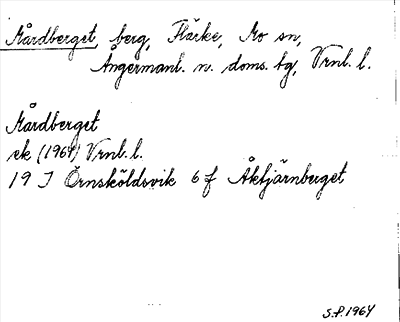 Mårdberget, berg, Flärke, Mo sn,
Ångermanl. n. doms. tg, Vrnl. l.
Mårdberget
ek (1964) Vrnl. l.
19 I Örnsköldsvik 6 f Åktjärnberget
S.P. 1964